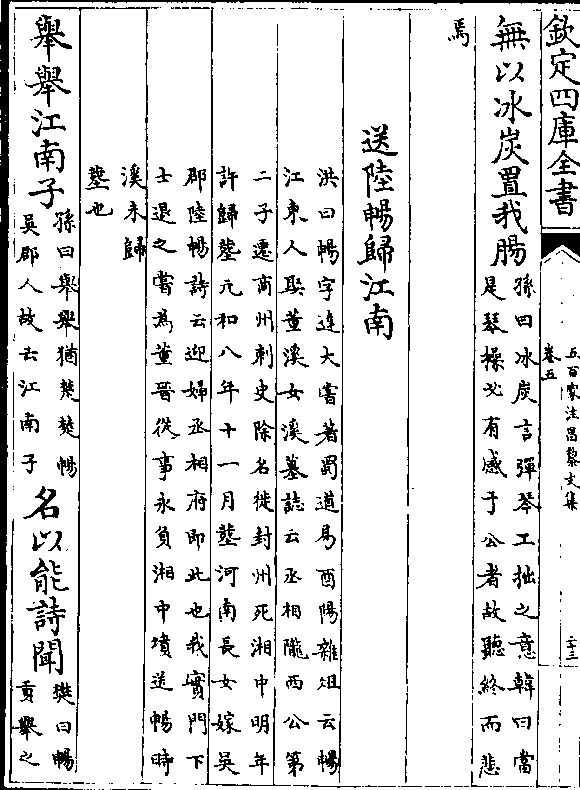 欽定四庫全書
五百家注昌黎文集
卷五
二十三
無以冰炭置我腸
孫曰冰炭言彈琴工拙之意韓曰當
是琴操必有感于公者故聽終而悲
焉
送陸暢歸江南
洪曰暢字達大嘗著蜀道易酉陽雜俎云暢
江東人娶董溪女溪墓誌云丞相隴西公第
二子遷商州刺史除名徙封州死湘中明年
許歸塟元和八年十一月塟河南長女嫁吳
郡陸暢詩云迎婦丞相府即此也我實門下
士退之嘗為董晉從事永負湘中墳送暢時
溪未歸
塟也
舉舉江南子
孫曰舉舉猶楚楚暢
吳郡人故云江南子
名以能詩聞
樊曰暢
貢舉之